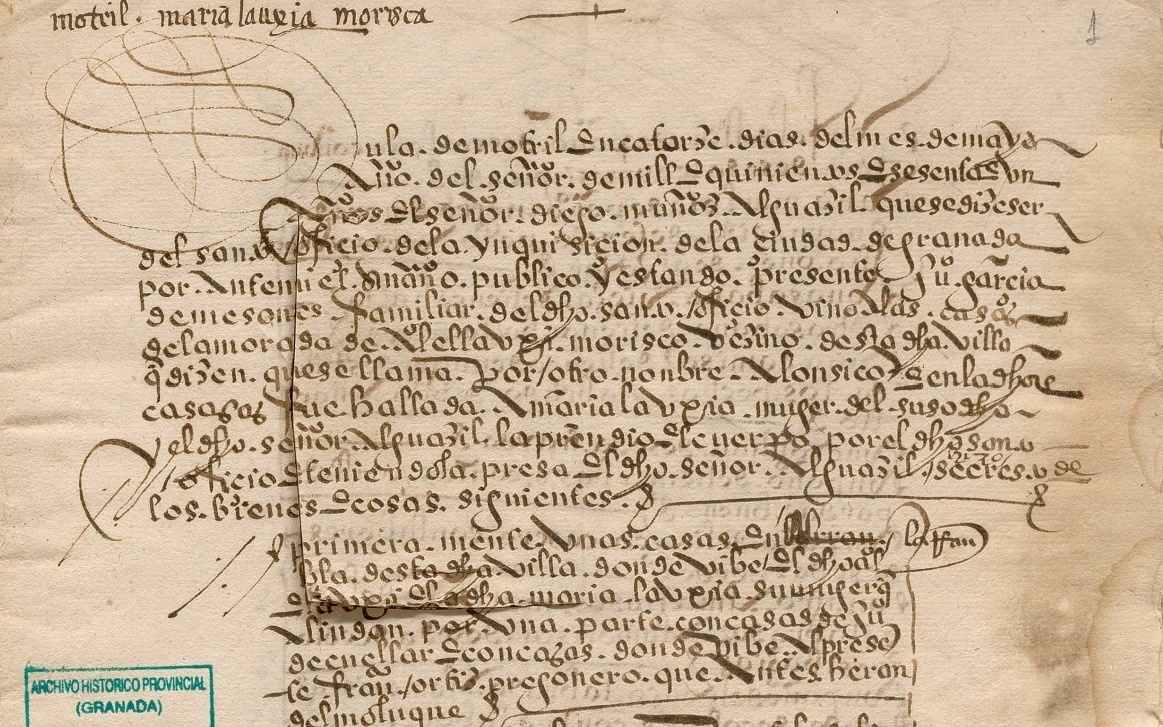 motril. maria lauxia morisca
1
ula. de motril en catorze. dias. del mes. de mayo
Año. del. señor. de mill e quinientos e sesenta e un
años el señor. diego. muñoz. alguazil. que se dize ser
del santo oficio. de la ynquisicion. de la ciudad. de granada
por. ante mi el. publico. y estando. presente Ju. garcia
de mesones. familiar. del dho. santo. oficio. vino a las. casas
de la morada de. morisco. vezino. desta dha villa
q dizen. que se llama. por otro nonbre. alonsico e en la dha
casas fue hallada. maria lauxia. muger. del suso dho
y el dho. señor. alguazil. la prendio el cuerpo. por el dho santo
oficio e teniendola. presa el dho. señor. alguazil
los. bienes e cosas. siguientes.
primera. mente. unas. casas. en la fran
desta dha villa. donde vibe. el dho al
e la dha. maria. lauxia su muger q
alindan. por una. parte. con casas de Ju
de cuellar e con casas. donde vibe. al prese
te fran. ortiz. pregonero. que antes heran
del moluque
ARCHIVO HISTORICO PROVINCIAL
(GRANADA)